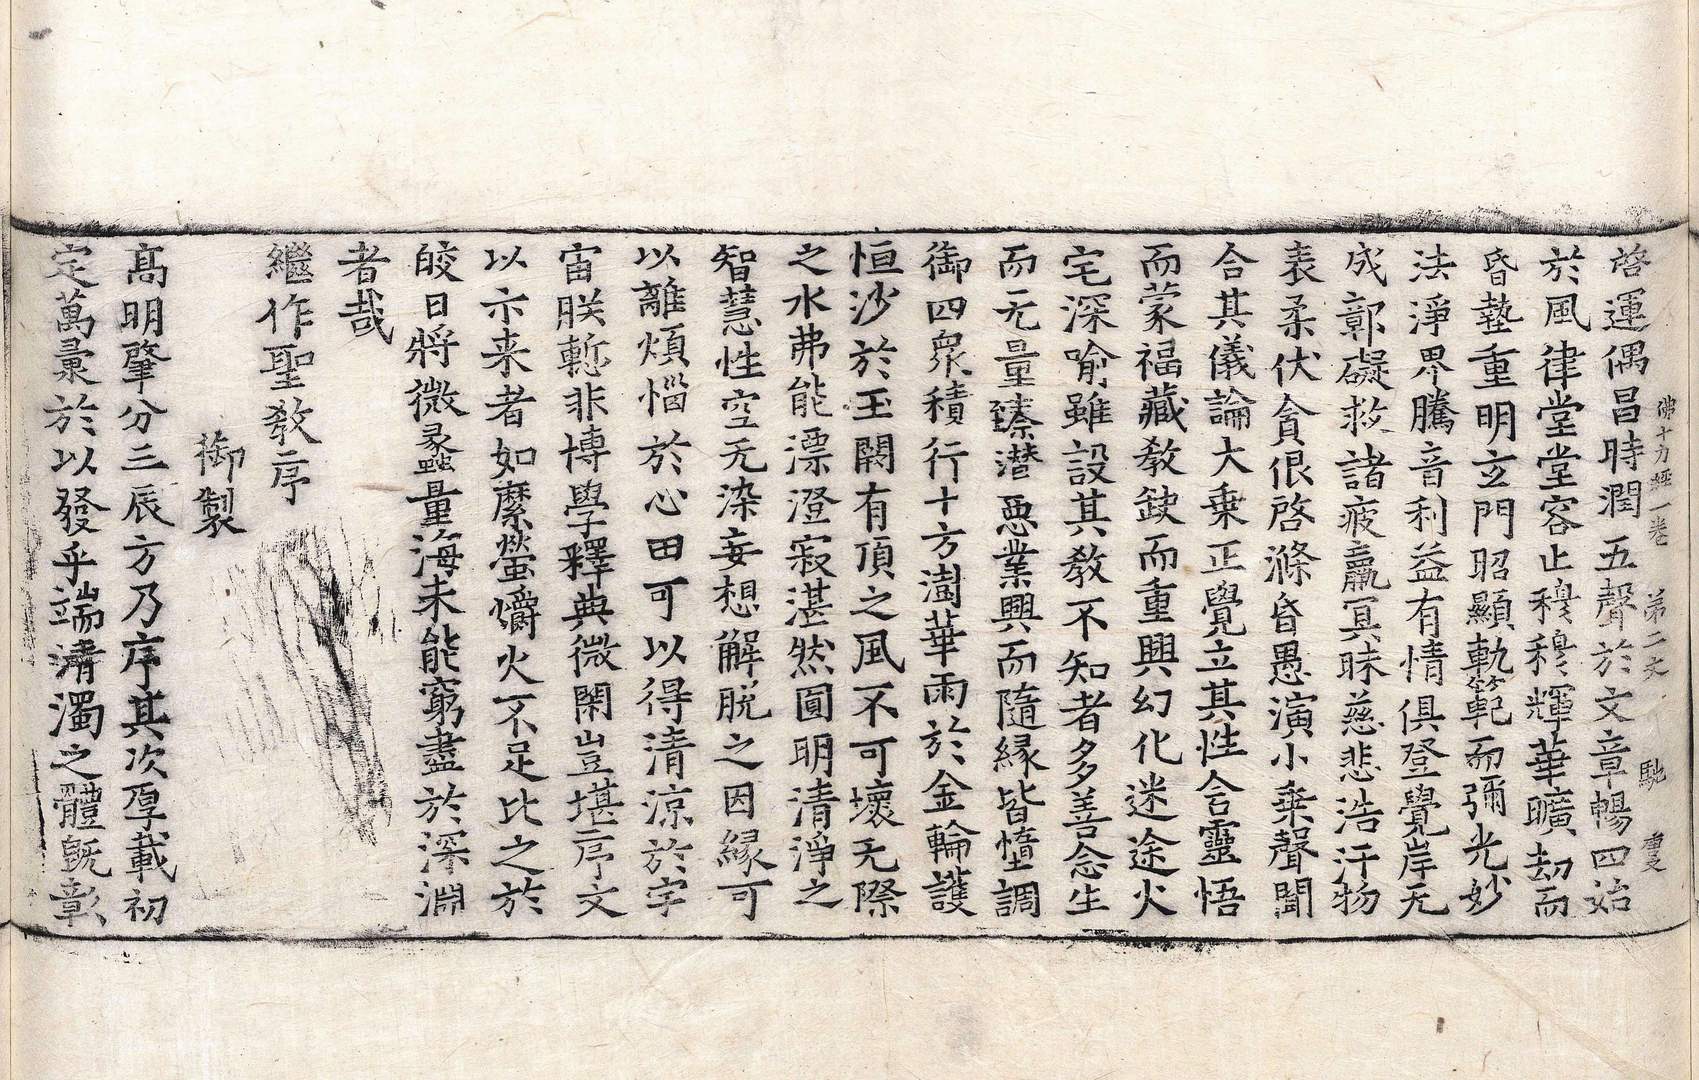 佛十力經一卷　第二文　馳　慶
啓運偶昌時潤五聲於文章暢四始
於風律堂堂容止穆穆輝華曠劫而
昏墊重明玄門昭顯軌範而弥光妙
法淨界騰音利益有情俱登覺岸无
成鄣礙救諸疲羸冥昧慈悲浩汗物
表柔伏貪佷啓滌昏愚演小乗聲聞
合其儀論大乗正覺立其性含靈悟
而蒙福藏教缺而重興幻化迷途火
宅深喻雖設其教不知者多善念生
而无量臻潜惡業興而隨縁皆惰調
御四衆積行十方澍華雨於金輪護
恒沙於玉闕有頂之風不可壞无際
之水弗能漂澄寂湛然圓明清淨之
智慧性空无染妄想解脱之因縁可
以離煩惱於心田可以得清涼於宇
宙朕慙非博學釋典微閑豈堪序文
以示来者如縻螢爝火不足比之於
皎日將微蠡量海未能窮盡於深淵
者哉
繼作聖教序
御製
髙明肇分三辰方乃序其次厚載初
定萬彙於以發乎端清濁之體旣彰